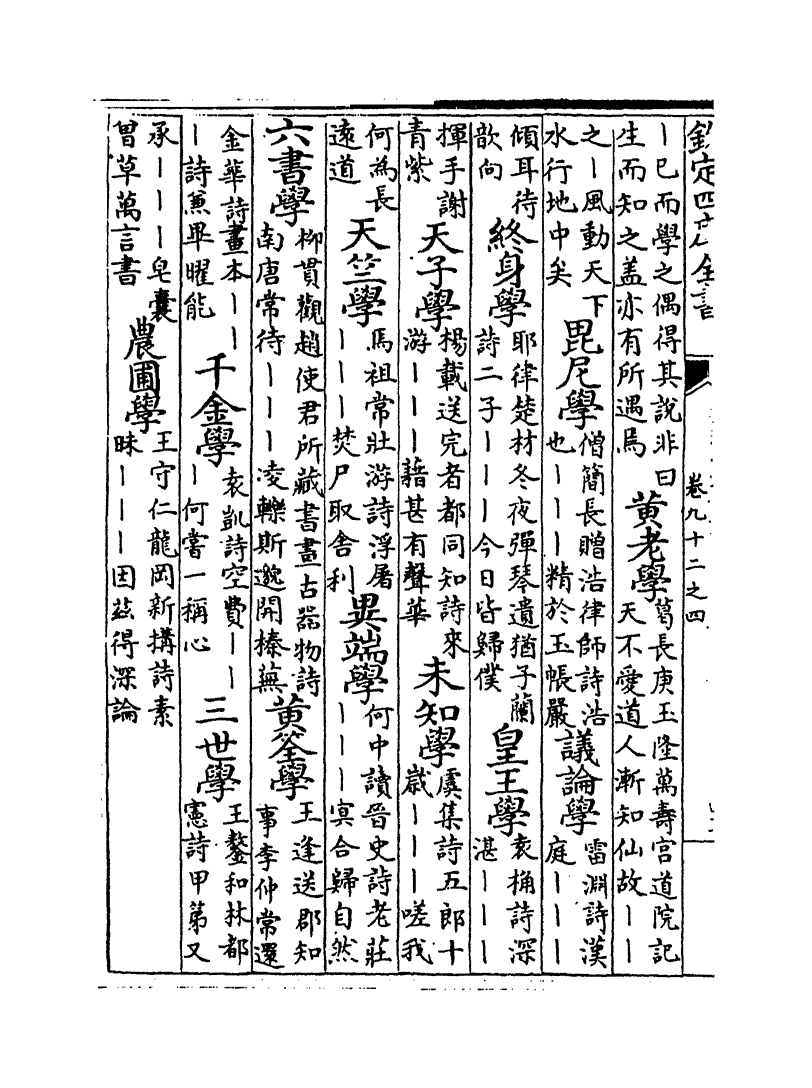 欽定四庫全書
卷九十二之四
｜已而學之偶得其說非曰
生而知之盖亦有所遇焉
黃老學
葛長庚玉隆萬壽宫道院記
天不愛道人漸知仙故｜｜
之｜風動天下
水行地中矣
毘尼學
僧簡長贈浩律師詩浩
也｜｜｜精於玉帳嚴
議論學
雷淵詩漢
庭｜｜｜
傾耳待
歆向
終身學
耶律楚材冬夜彈琴遺猶子蘭
詩二子｜｜｜今日皆歸僕
皇王學
袁桷詩深
湛｜｜｜
揮手謝
青紫
天子學
楊載送完者都同知詩來
游｜｜｜藉甚有聲華
未知學
虞集詩五郎十
歲｜｜｜嗟我
何為長
遠道
天竺學
馬祖常壯游詩浮屠
｜｜｜焚尸取舍利
異端學
何中讀晉史詩老莊
｜｜｜冥合歸自然
六書學
柳貫觀趙使君所藏書畫古器物詩
南唐常待｜｜｜凌轢斯邈開榛蕪
黃筌學
王逢送郡知
事李仲常還
金華詩畫本｜｜
｜詩兼畢曜能
千金學
袁凱詩空費｜｜
｜何嘗一稱心
三世學
王鏊和林都
憲詩甲第又
承｜｜｜皂囊
曾草萬言書
農圃學
王守仁龍岡新搆詩素
昧｜｜｜因兹得深論